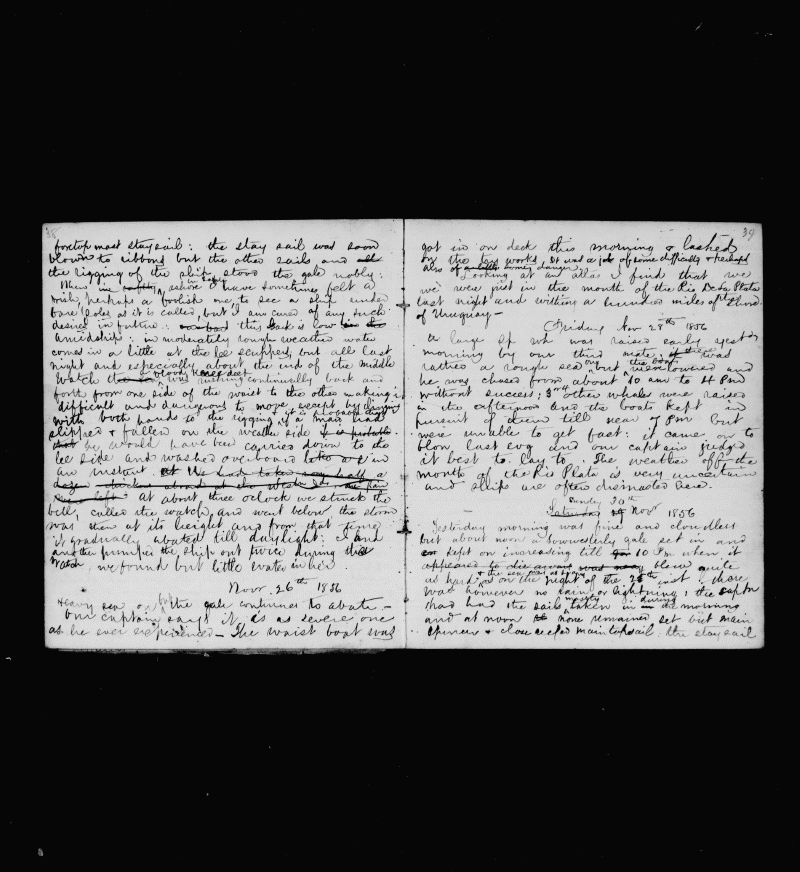 38
foretop mast stay sail: the stay sail was soon
blown to ribbons but the other sails and all
the rigging of the ship stood the gale nobly:
When in ashore I have sometimes felt a
wish, perhaps a foolish one, to see a ship under
bare poles as it is called, but I am cured of any such
desires in future: this bark is low in the
amidships: in moderately rough weather water
comes in a little at the lee scuppers, but all last
night and especially about the end of the middle
watch was rushing continually back and
forth from one side of the waist to the other making it
difficult and dangerous to move except by clinging
with both hands to the rigging if a man had
slipped & fallen on the weather side it is probable
that he would have been carried down to the
lee side and washed overboard in
an instant at the
at about three oclock we struck the
bell, called the watch, and went below the storm
was then at its height and from that time
it gradually abated till daylight: I and
another pumped the ship out twice during that
watch, we found but little water in her.
Nov. 26th 1856
Heavy sea on but the gale continues to abate –
our captain says it is as severe one
as he ever experienced – The waist boat was
39
got in on deck this morning & lashed
on the works, it was a job of some difficulty & perhaps
also of some danger
Looking at an atlas I find that we
we were just in the mouth of the Rio De La Plata
last night and within a hundred miles of the
of Uruguay –
Friday Nov 28th 1856
A large Sp wh was raised early yester
morning by our third mate, there was
rather a rough sea on, but the boat lowered and
he was chased from about 10 am to 4 Pm
without success; other whales were raised
in the afternoon and the boats kept in
pursuit of them till near 7 Pm but
were unable to get fast: it came on to
blow last evg and our captain judged
it best to lay to. The weather off the
mouth of the Rio Plata is very uncertain
and ships are often dismasted here.
Sunday 30th
Saturday 29 Nov 1856
Yesterday morning was fine and cloudless
but about noon a sowwesterly gale set in and
kept on increasing till 10 Pm when it
appeared to blew quite
as hard & the sea was as high as on the night of the 25th inst there
was however no rain or lightning: the captn
had had the sails mostly taken in during the morning
and at noon no more remained set but main
spencer & close reefed main topsail. the staysail